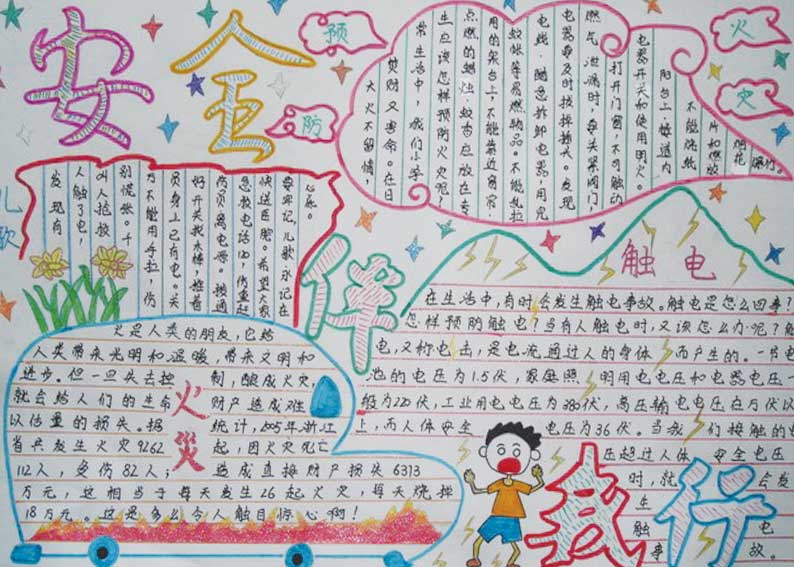 安全
预
防
火
灾
大火不留情，
焚财又害命。在日
常生活中，我们小学
生应该怎样预防火灾呢？
点燃的蜡烛、蚊香应放在专
用的架台上，不能靠近窗帘、
蚊帐等易燃物品。不能乱拉
电线，随意拆卸电器，用完
电器要及时拔掉插头。发现
燃气泄漏时，要关紧阀门，
打开门窗，不可触动
电器开关和使用明火。
阳台上、楼道内
不能烧纸
片和燃放
烟花
爆竹。
儿歌
发现有
人触了电，
叫人抢救
别慌张。千
万不能用手拉，伤
员身上已有电。关
好开关找木棒，推着
伤员离电源。拨通
急救电话120，伤重赶
快送医院。希望大家
要牢记，儿歌永记在
心底。
伴
触电
在生活中，有时会发生触电事故。触电是怎么回事？
怎样预防触电？当有人触电时，又该怎么办呢？触
电，又称电击，是电流通过人的身体而产生的。一节电
池的电压为1.5伏，家庭照明用电电压和电器电压一
般为220伏，工业用电电压为380伏，高压输电电压在万伏以
上，而人体安全电压为36伏。当我们接触的电
压超过人体安全电压
时，就会发
生
触电
事故。
火灾
火是人类的朋友，它给
人类带来光明和温暖，带来文明和
进步。但一旦失去控制，酿成火灾，
就会给人们的生命财产造成难
以估量的损失。据统计，2005年浙江
省共发生火灾9262起，因火灾死亡
112人，受伤82人；造成直接财产损失6373
万元，这相当于每天发生26起火灾，每天烧掉
18万元。这是多么令人触目惊心啊！
我行